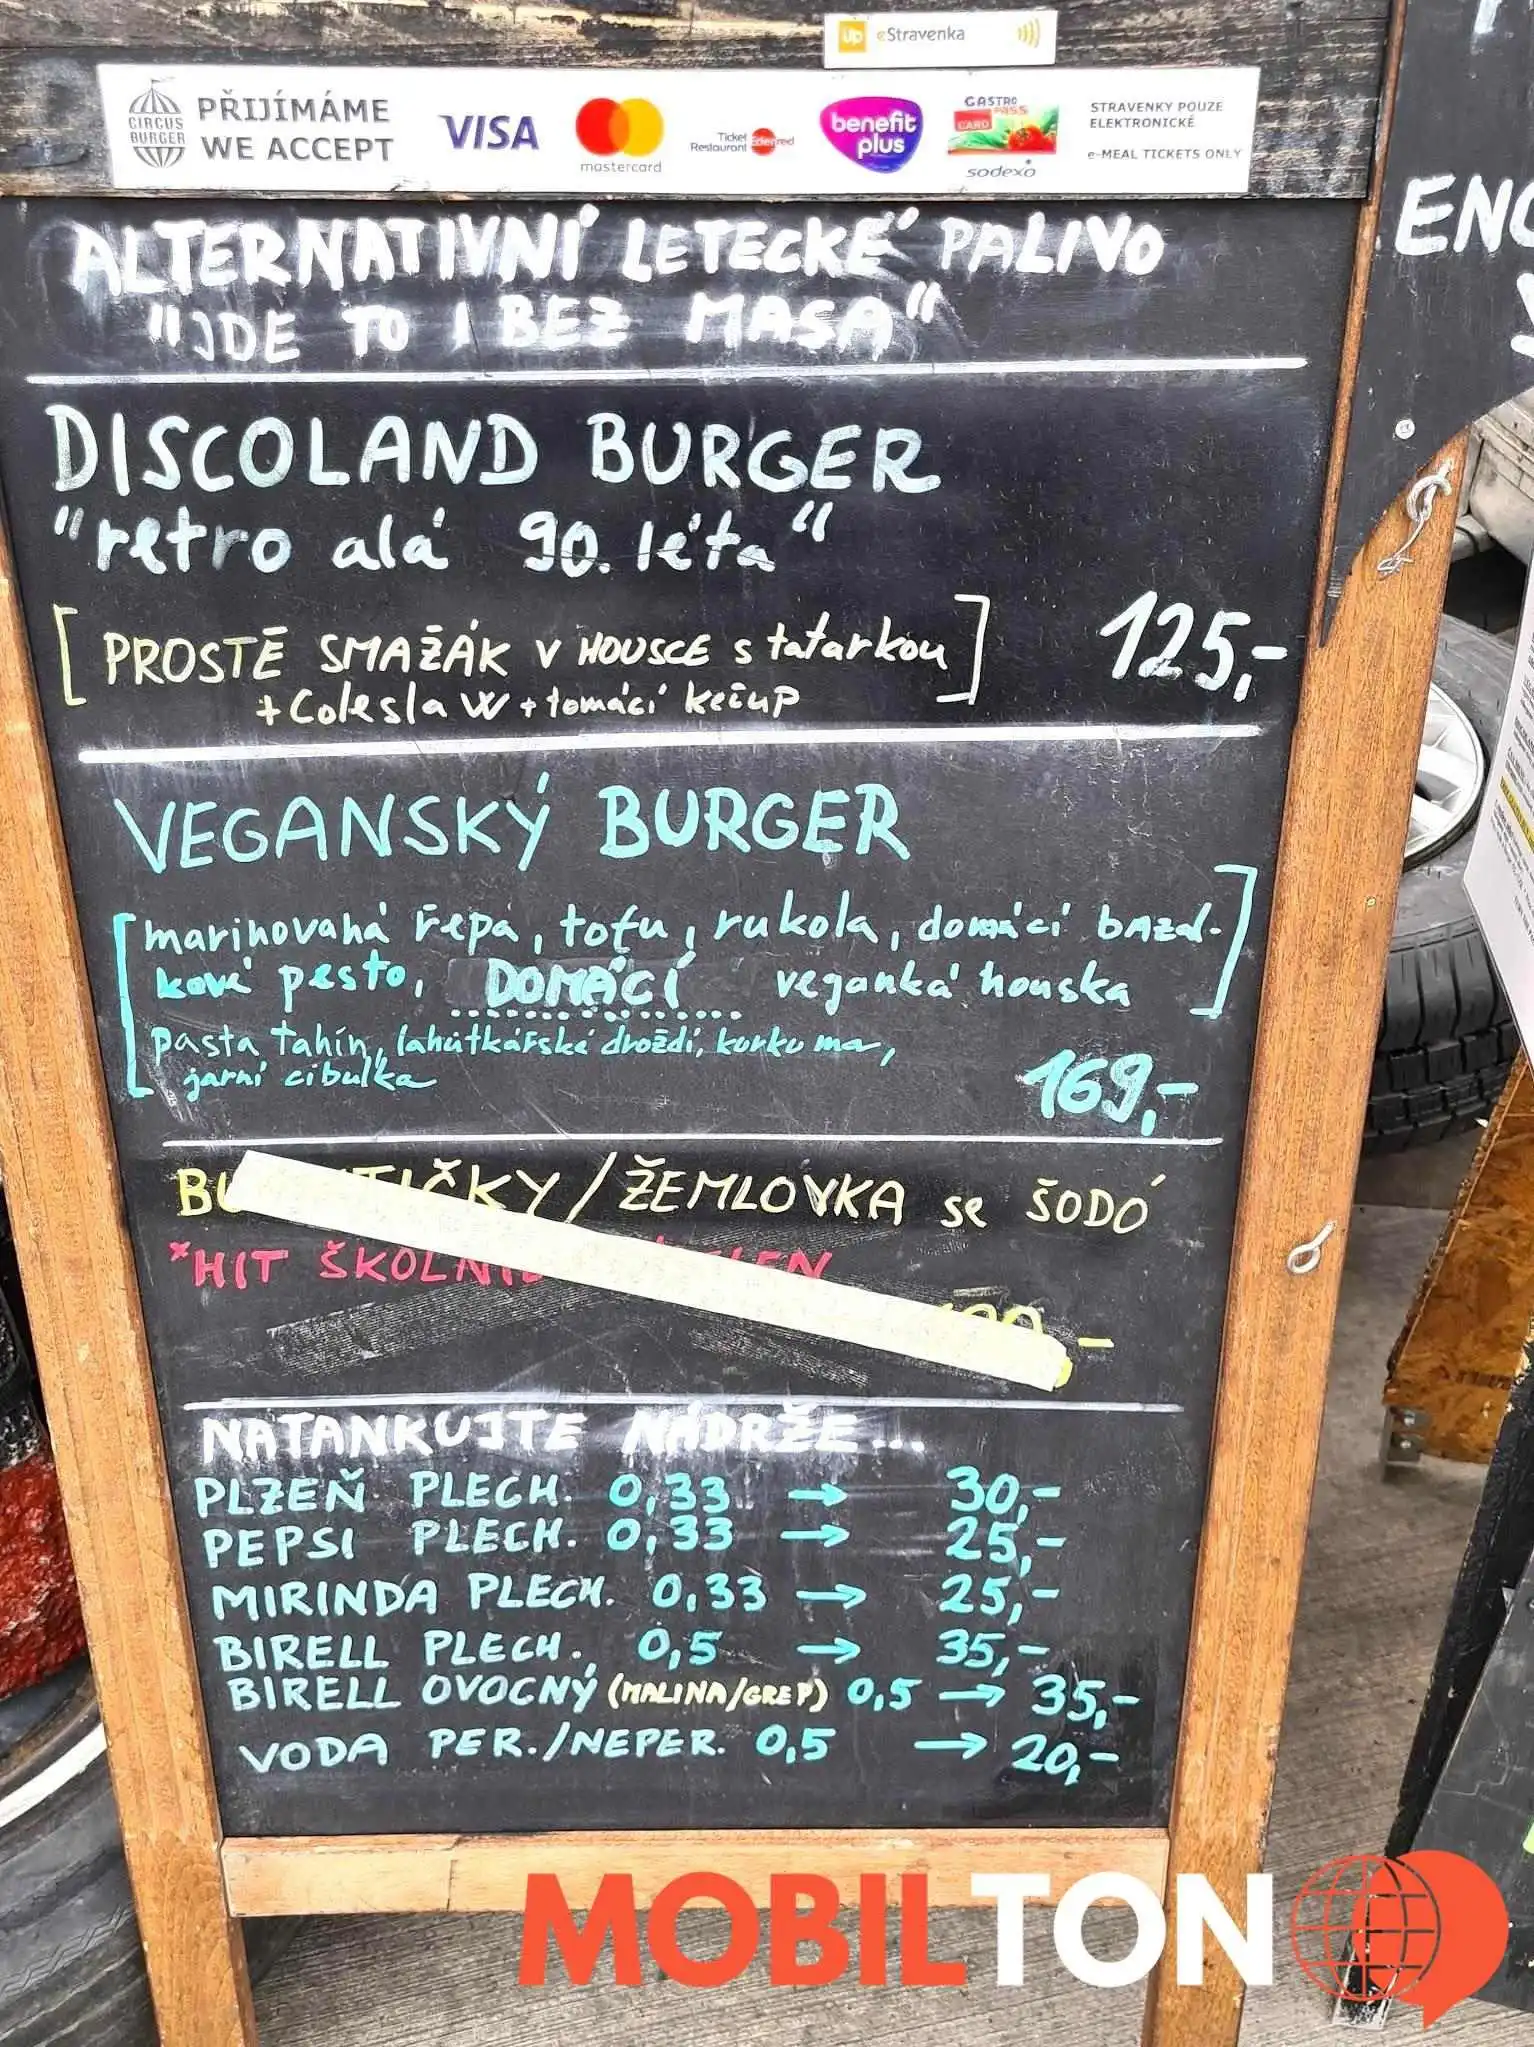 up eStravenka
CIRCUS BURGER
PŘIJÍMÁME
WE ACCEPT
VISA
mastercard
Ticket Restaurant Edenred
benefit plus
GASTRO PASS CARD
sodexo
STRAVENKY POUZE
ELEKTRONICKÉ
e-MEAL TICKETS ONLY
ALTERNATIVNÍ LETECKÉ PALIVO
"JDE TO I BEZ MASA"
DISCOLAND BURGER
"retro alá 90. léta"
[PROSTĚ SMAŽÁK V HOUSCE s tatarkou]
+ Coleslaw + tomácí kečup
125,-
VEGANSKÝ BURGER
[marinovaná řepa, tofu, rukola, domácí bazal-
kové pesto, DOMÁCÍ veganká houska]
pasta tahín, lahůtkářské droždí, kurkuma,
jarní cibulka
169,-
ŽEMLOVKA se ŠODÓ
*HIT
NATANKUJTE NÁDRŽE...
PLZEŇ PLECH. 0,33 → 30,-
PEPSI PLECH. 0,33 → 25,-
MIRINDA PLECH. 0,33 → 25,-
BIRELL PLECH. 0,5 → 35,-
BIRELL OVOCNÝ (MALINA/GREP) 0,5 → 35,-
VODA PER./NEPER. 0,5 → 20,-
MOBILTON